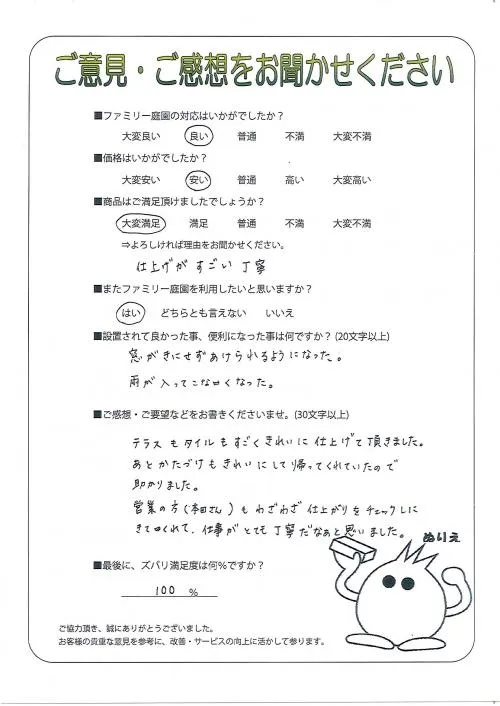 ご意見・ご感想をお聞かせください
■ファミリー庭園の対応はいかがでしたか？
大変良い 良い 普通 不満 大変不満
■価格はいかがでしたか？
大変安い 安い 普通 高い 大変高い
■商品はご満足頂けましたでしょうか？
大変満足 満足 普通 不満 大変不満
⇒よろしければ理由をお聞かせください。
仕上げがすごい丁寧
■またファミリー庭園を利用したいと思いますか？
はい どちらとも言えない いいえ
■設置されて良かった事、便利になった事は何ですか？(20文字以上)
窓がきにせずあけられるようになった。
雨が入ってこなくなった。
■ご感想・ご要望などをお書きくださいませ。(30文字以上)
テラスもタイルもすごくきれいに仕上げて頂きました。
あとかたづけもきれいにして帰ってくれていたので
助かりました。
営業の方(本田さん)もわざわざ仕上がりをチェックしに
きてくれて、仕事がとても丁寧だなぁと思いました。
ぬりえ
■最後に、ズバリ満足度は何%ですか？
100 %
ご協力頂き、誠にありがとうございました。
お客様の貴重な意見を参考に、改善・サービスの向上に活かして参ります。